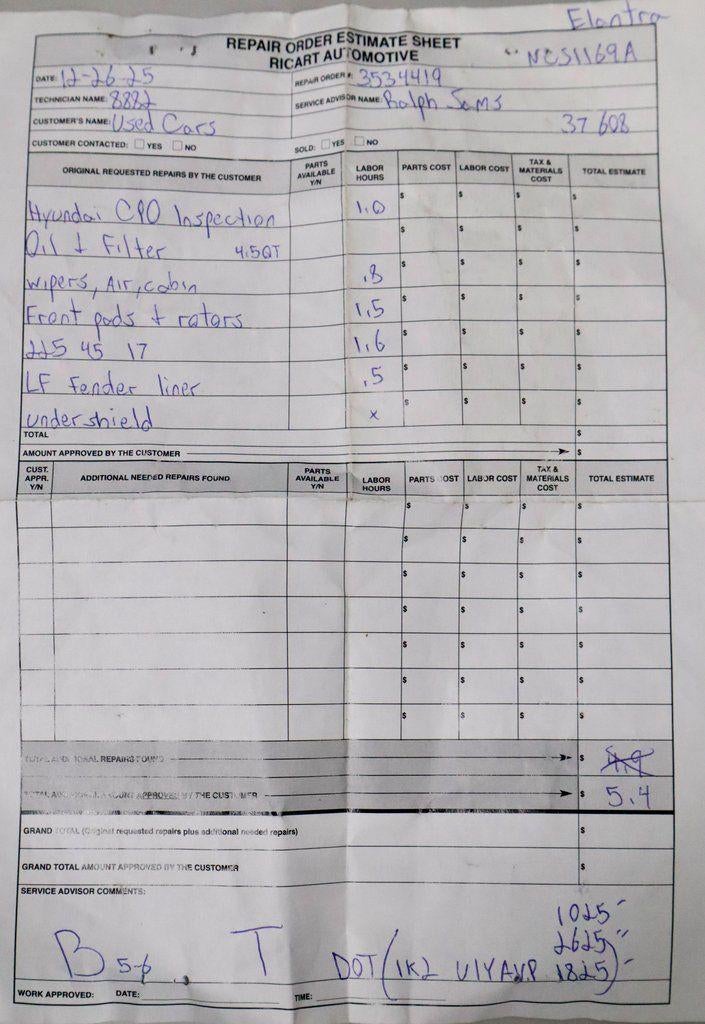 Elantra
REPAIR ORDER ESTIMATE SHEET
RICART AUTOMOTIVE
NCS1169A
DATE: 12-26-25
REPAIR ORDER #: 3534419
TECHNICIAN NAME: 8882
SERVICE ADVISOR NAME: Ralph Sams
CUSTOMER'S NAME: Used Cars
37 608
CUSTOMER CONTACTED: ☐ YES ☐ NO
SOLD: ☐ YES ☐ NO
ORIGINAL REQUESTED REPAIRS BY THE CUSTOMER PARTS AVAILABLE Y/N LABOR HOURS PARTS COST LABOR COST TAX & MATERIALS COST TOTAL ESTIMATE
Hyundai CPO Inspection 1.0 $ $ $ $
Oil + Filter 4.5QT $ $ $ $
wipers, Air, cabin .8 $ $ $ $
Front pads + rotors 1.5 $ $ $ $
225 45 17 1.6 $ $ $ $
LF Fender liner .5 $ $ $ $
undershield x $ $ $ $
TOTAL $
AMOUNT APPROVED BY THE CUSTOMER $
CUST. APPR. Y/N ADDITIONAL NEEDED REPAIRS FOUND PARTS AVAILABLE Y/N LABOR HOURS PARTS COST LABOR COST TAX & MATERIALS COST TOTAL ESTIMATE
$ $ $ $
$ $ $ $
$ $ $ $
$ $ $ $
$ $ $ $
$ $ $ $
$ $ $ $
TOTAL ADDITIONAL REPAIRS FOUND $ 4.9
TOTAL ADDITIONAL AMOUNT APPROVED BY THE CUSTOMER $ 5.4
GRAND TOTAL (Original requested repairs plus additional needed repairs) $
GRAND TOTAL AMOUNT APPROVED BY THE CUSTOMER $
SERVICE ADVISOR COMMENTS:
1025
2625
B 5-6 T DOT (1K2 U1Y 1825)
WORK APPROVED: DATE: TIME: